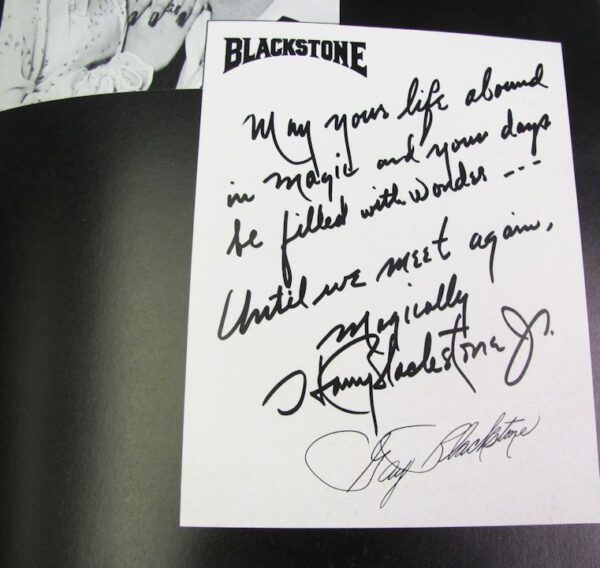 BLACKSTONE
May your life abound
in magic and your days
be filled with wonder ---
Until we meet again,
magically
Harry Blackstone Jr.
Gay Blackstone